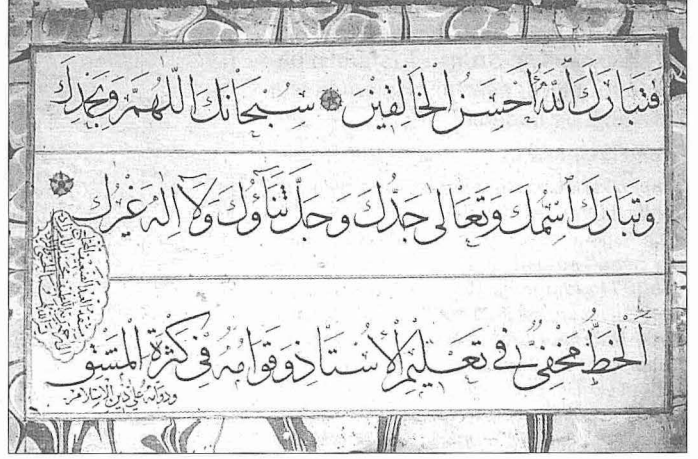 فَتَبَارَكَ ٱللّٰهُ أَحْسَنُ الْخَالِقِينَ سُبْحَانَكَ اللّٰهُمَّ وَبِحَمْدِكَ
وَتَبَارَكَ ٱسْمُكَ وَتَعَالٰى جَدُّكَ وَجَلَّ ثَنَاؤُكَ وَلَآ اِلٰهَ غَيْرُكَ
اَلْخَطُّ مَخْفِيٌّ فِي تَعْلِيْمِ الْأُسْتَاذِ وَقِوَامُهُ فِي كَثْرَةِ الْمَشْقِ
ودوامه على دين الاسلام